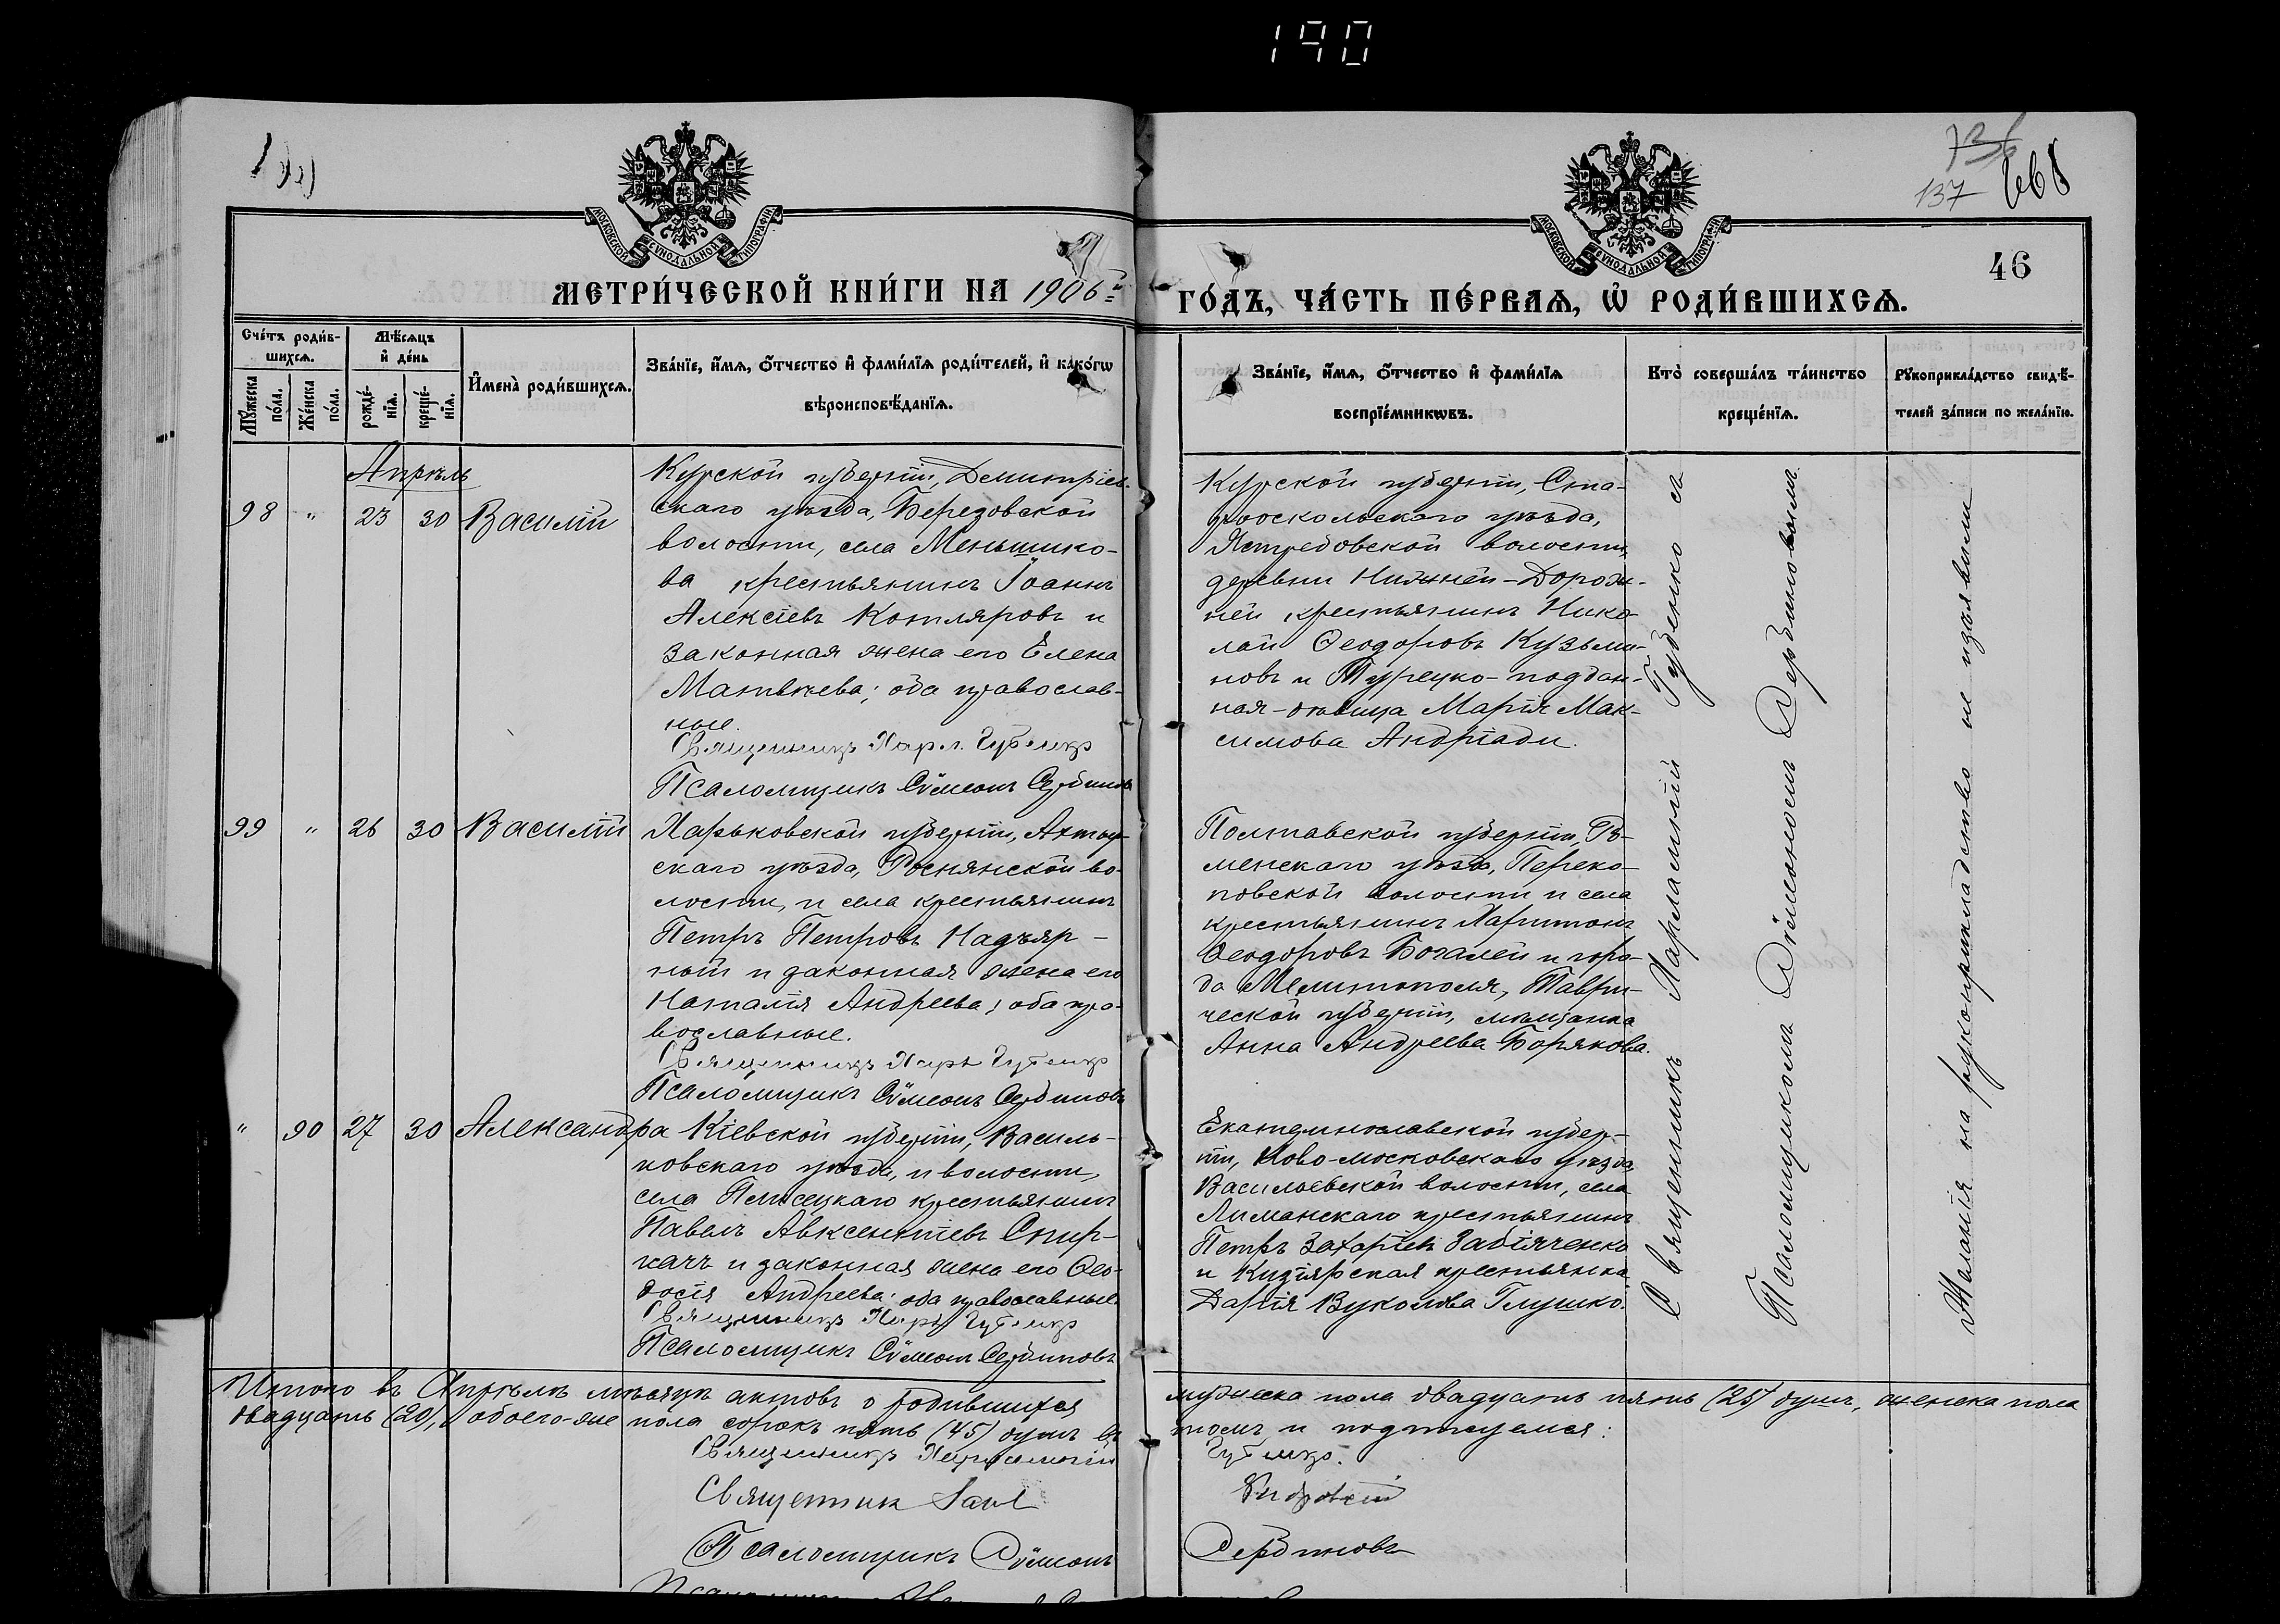 190
137
МОСКОВСКОЙ СѴНОДАЛЬНОЙ ТИПОГРАФІИ
МОСКОВСКОЙ СѴНОДАЛЬНОЙ ТИПОГРАФІИ
46
МЕТРИ́ЧЕСКОЙ КНИ́ГИ НА 1906 й
ГО́ДЪ, ЧА́СТЬ ПЕ́РВАѦ, Ѡ҆ РОДИ́ВШИХСѦ.
Сче́тъ роди́в-
шихсѧ.
Мꙋ́жеска по́ла.
Же́нска по́ла.
Мѣ́сѧцъ
и҆ де́нь
рожде́-
нїѧ.
креще́-
нїѧ.
И҆мена̀ роди́вшихсѧ.
Зва́нїе, и҆́мѧ, ѻ҆́тчество и҆ фами́лїѧ роди́телей, и҆ како́гѡ
вѣроисповѣ́данїѧ.
Зва́нїе, и҆́мѧ, ѻ҆́тчество и҆ фами́лїѧ
воспрїе́мникѡвъ.
Кто̀ соверша́лъ та́инство
креще́нїѧ.
Рꙋкоприкла́дство свидѣ́-
телей за́писи по жела́нїю.
Апрѣль
98 " 23 30 Василій
Курской губерніи, Демитріев-
скаго уѣзда, Березовской
волости, села Меньшико-
ва крестьянинъ Іоаннъ
Алексіевъ Котляровъ и
законная жена его Елена
Матвѣева; оба православ-
ные.
Священникъ Харл. Губенко
Псаломщикъ Сѵмеонъ Сербиновъ
Курской губерніи, Ста-
рооскольскаго уѣзда,
Ястребовской волости,
деревни Нижней-Дорож-
ней крестьянинъ Нико-
лай Ѳеодоровъ Кузьми-
новъ и Турецко-поддан-
ная-дѣвица Марія Мак-
симова Андріади.
99 " 26 30 Василій
Харьковской губерніи, Ахтыр-
скаго уѣзда, Роснянской во-
лости, и села крестьянинъ
Петръ Петровъ Надъяр-
ный и законная жена его
Наталія Андреева; оба пра-
вославные.
Священникъ Харл Губенко
Псаломщикъ Сѵмеонъ Сербиновъ
Полтавской губерніи, Ро-
менскаго уѣзда, Переко-
повской волости и села
крестьянинъ Харитонъ
Ѳеодоровъ Богалей и горо-
да Мелитополя, Таври-
ческой губерніи, мѣщанка
Анна Андреева Борякова.
" 90 27 30 Александра
Кіевской губерніи, Василь-
ковскаго уѣзда, и волости,
села Плисецкаго крестьянинъ
Павелъ Авксентіевъ Спир-
качъ и законная жена его Ѳео-
досія Андреева; оба православные.
Священникъ Харл Губенко
Псаломщикъ Сѵмеонъ Сербиновъ
Екатеринославской губер-
ніи, Ново-московскаго уѣзда,
Васильевской волости, села
Лиманскаго крестьянинъ
Петръ Захаріевъ Забіяченко
и Кизіярская крестьянка
Дарія Вуколова Глушко.
Священникъ Харлампій Губенко съ
Псаломщикомъ Сѵмеономъ Сербиновымъ
Желанія на рукоприкладство не изъявили
Итого въ Апрѣлѣ мѣсяцѣ актовъ о родившихся мужеска пола двадцать пять (25) душъ, женска пола
двадцать (20), обоего-же пола сорокъ пять (45) душъ въ томъ и подписуемся:
Священникъ Харлампій Губенко.
Священник
Псаломщикъ Сѵмеонъ Сербиновъ